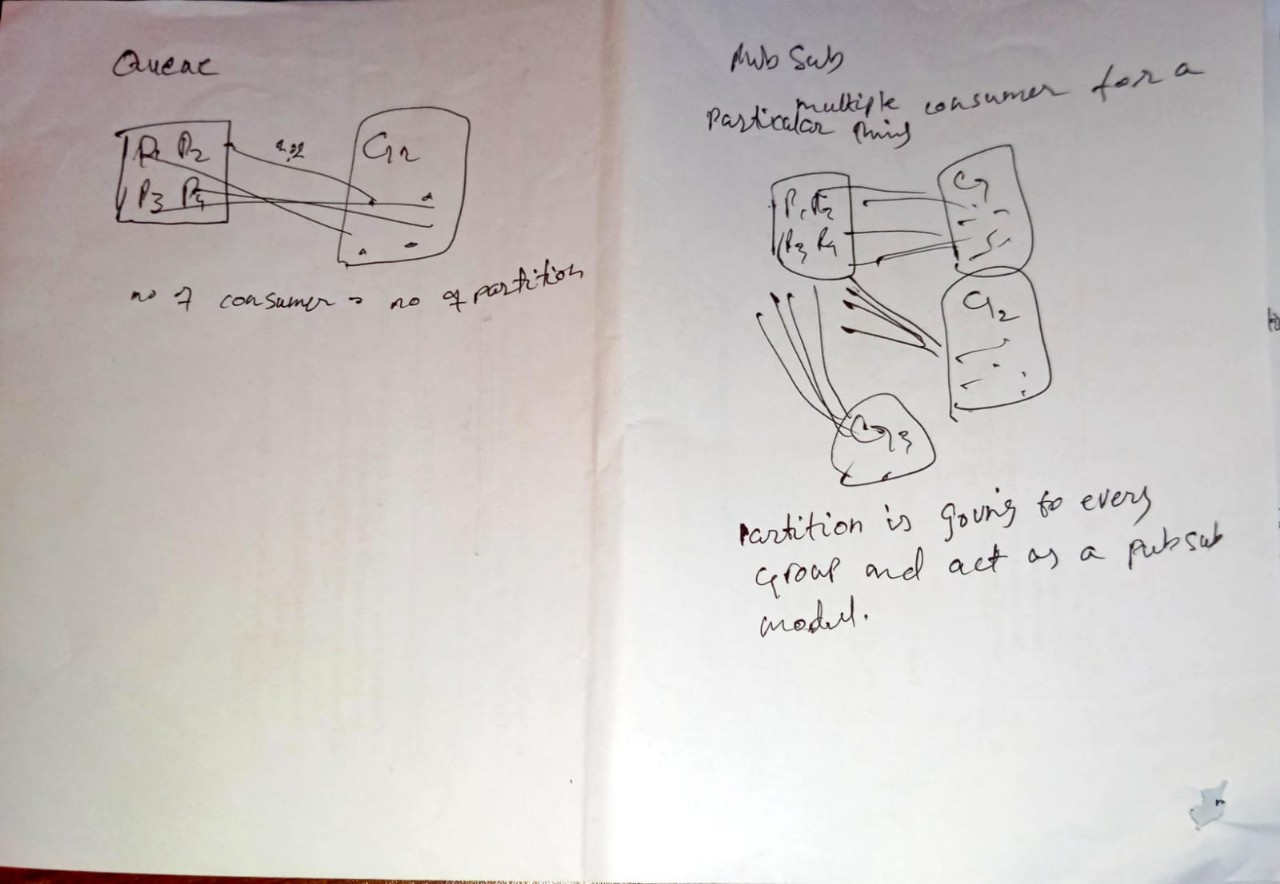 Queue
P1 P2
P3 P4
no of consumer = no of partition
Pub Sub
multiple consumer for a
particular thing
P1 P2
P3 P4
G2
G3
Partition is going to every
group and act as a pubsub
model.